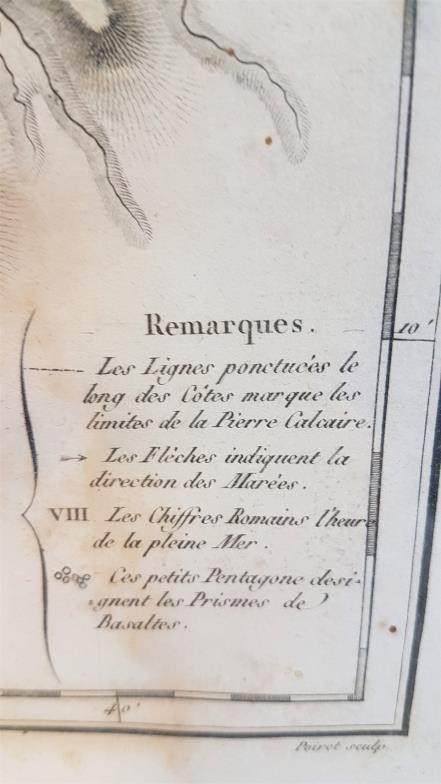 Remarques.
10'
Les Lignes ponctuées le
long des Côtes marque les
limites de la Pierre Calcaire.
Les Flêches indiquent la
direction des Marées.
VIII Les Chiffres Romains l'heure
de la pleine Mer.
Ces petits Pentagone desi-
gnent les Prismes de
Basaltes.
40'
Poirot sculp.